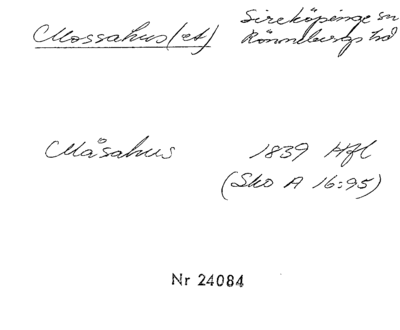 Mossahus (et) Sireköpinge sn
Rönnebergs hd
Måsahus 1839 Hfl
(Sko A 16:95)
Nr 24084